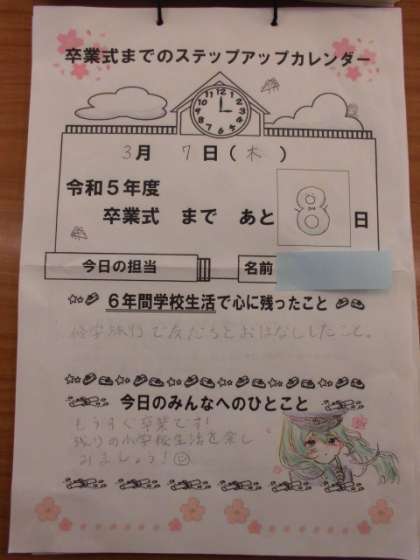 卒業式までのステップアップカレンダー
3月 7日(木)
令和5年度
卒業式 まで あと 8 日
今日の担当 名前
6年間学校生活で心に残ったこと
修学旅行で友だちとおはなししたこと。
今日のみんなへのひとこと
もうすぐ卒業です!
残りの小学校生活を楽し
みましょう!